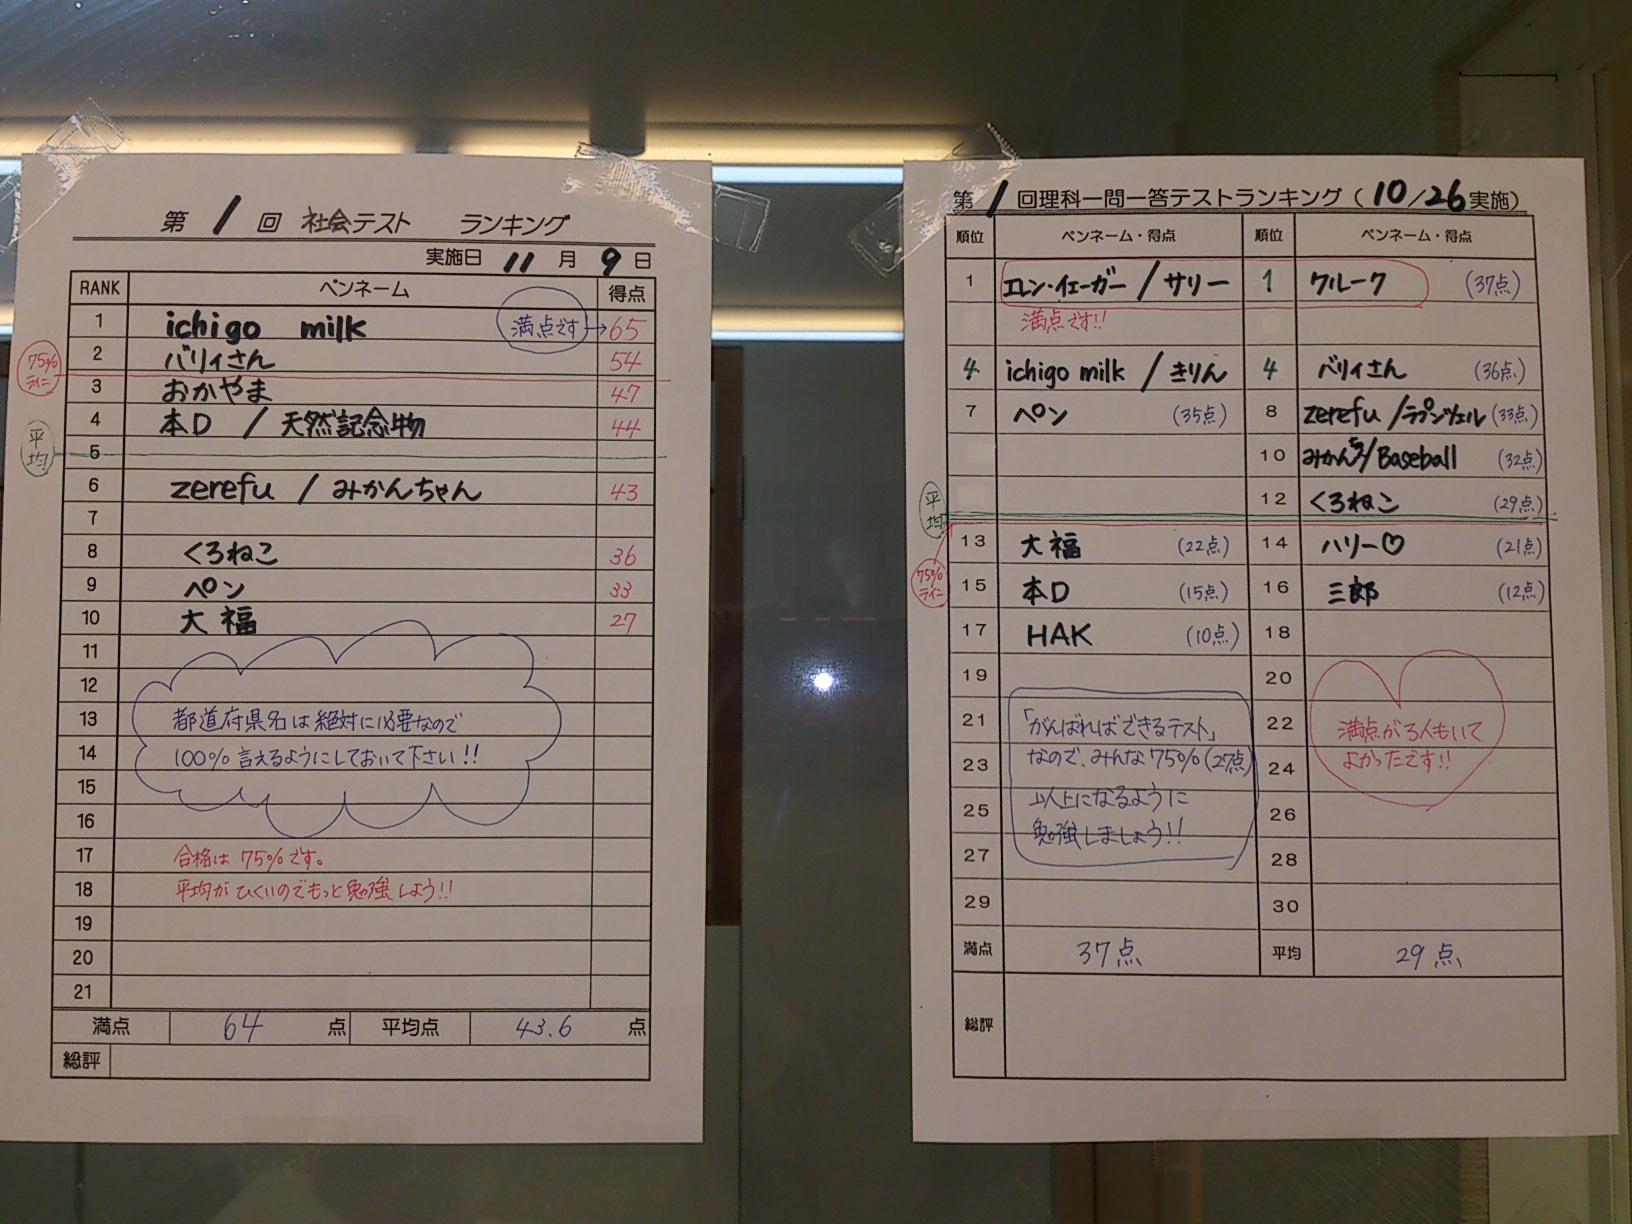 第 1 回 社会テスト ランキング
実施日 11 月 9 日
RANK ペンネーム 得点
1 ichigo milk 満点です→65
2 バリィさん 54
75%ライン
3 おかやま 47
4 本D / 天然記念物 44
平均
5
6 zerefu / みかんちゃん 43
7
8 くろねこ 36
9 ペン 33
10 大福 27
11
12
13 都道府県名は絶対に必要なので
14 100%言えるようにしておいて下さい!!
15
16
17 合格は75%です。
18 平均がひくいのでもっと勉強しよう!!
19
20
21
満点 64 点 平均点 43.6 点
総評
第 1 回理科一問一答テストランキング（10/26実施）
順位 ペンネーム・得点 順位 ペンネーム・得点
1 エレン・イェーガー / サリー 1 クルーク (37点)
満点です!!
4 ichigo milk / きりん 4 バリィさん (36点)
7 ペン (35点) 8 zerefu / ラプンツェル (33点)
10 みかんちゃん/Baseball (32点)
12 くろねこ (29点)
平均
13 大福 (22点) 14 ハリー♡ (21点)
75%ライン
15 本D (15点) 16 三郎 (12点)
17 HAK (10点) 18
19 20
21 「がんばればできるテスト」 22 満点が3人もいて
23 なので、みんな75%(27点) 24 よかったです!!
25 以上になるように 26
勉強しましょう!!
27 28
29 30
満点 37点 平均 29点
総評